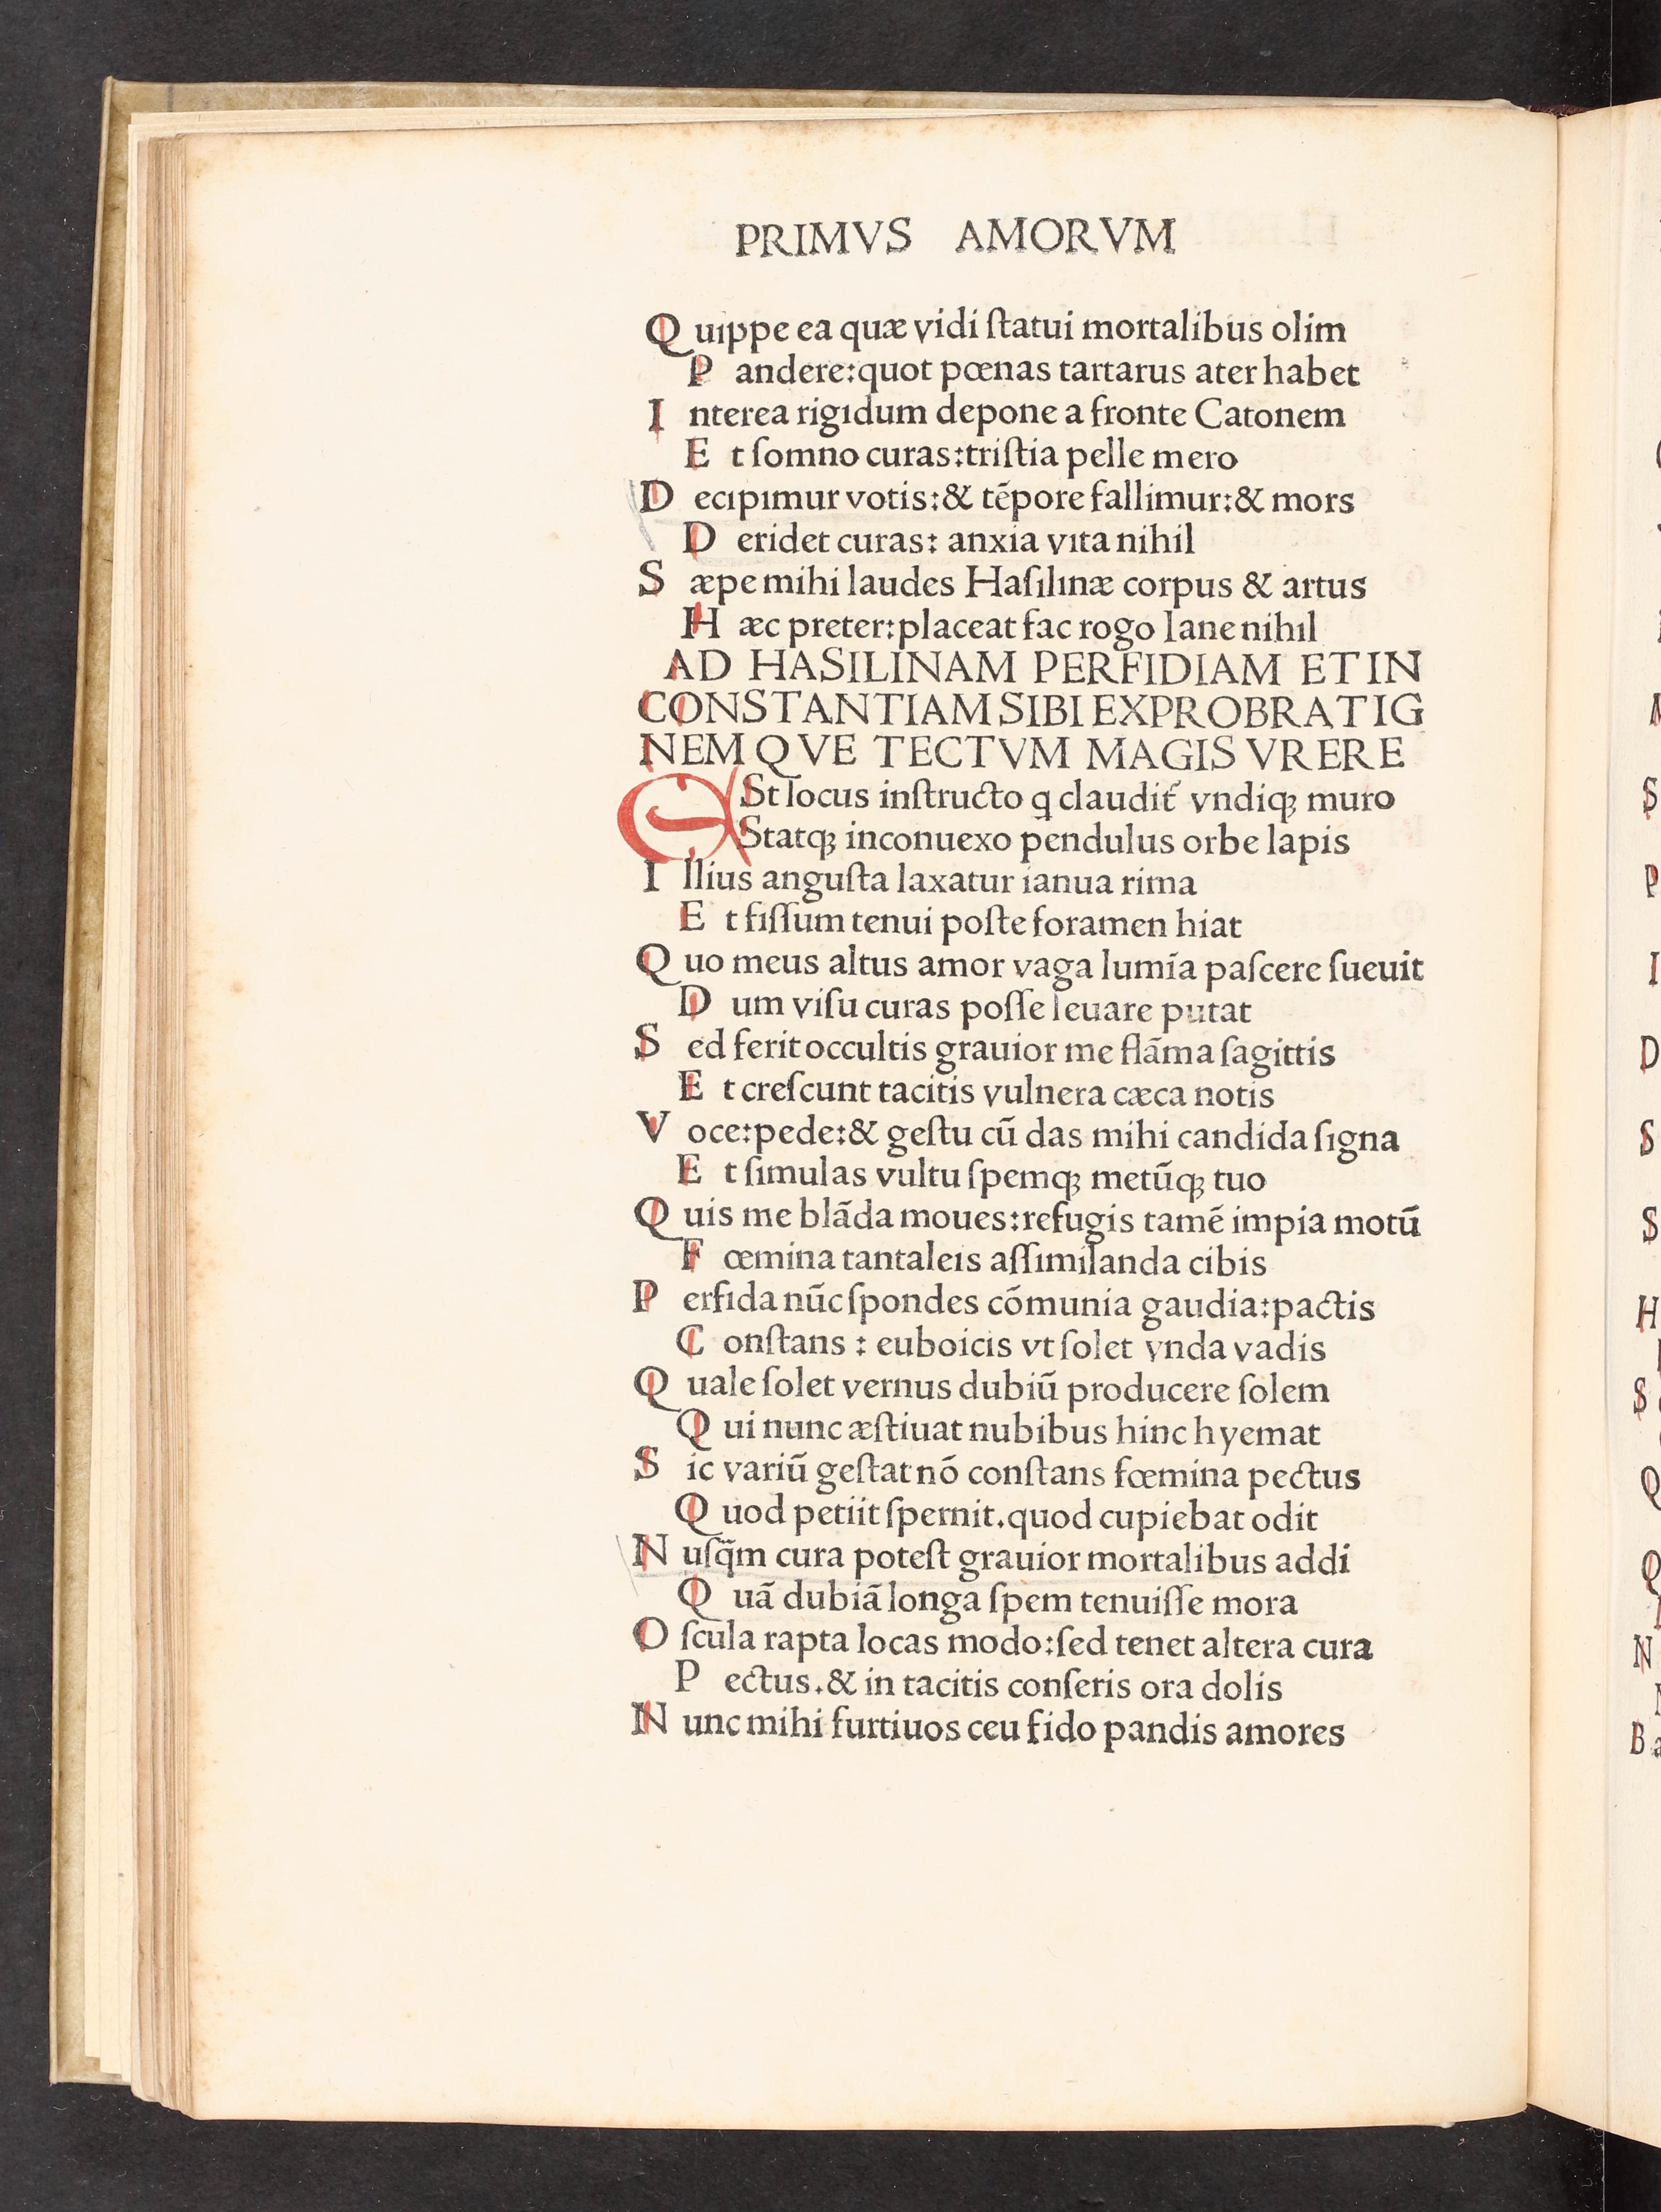 PRIMVS AMORVM
Quippe ea quæ vidi ſtatui mortalibus olim
Pandere:quot pœnas tartarus ater habet
Interea rigidum depone a fronte Catonem
Et ſomno curas:triſtia pelle mero
Decipimur votis:& tēpore fallimur:& mors
Deridet curas: anxia vita nihil
Sæpe mihi laudes Haſilinæ corpus & artus
Hæc preter:placeat fac rogo Iane nihil
AD HASILINAM PERFIDIAM ET IN
CONSTANTIAM SIBI EXPROBRAT IG
NEMQVE TECTVM MAGIS VRERE
ESt locus inſtructo ꝗ claudit᷑ vndiqꝫ muro
Statqꝫ inconuexo pendulus orbe lapis
Illius anguſta laxatur ianua rima
Et fiſſum tenui poſte foramen hiat
Quo meus altus amor vaga lumīa paſcere ſueuit
Dum viſu curas poſſe leuare putat
Sed ferit occultis grauior me flāma ſagittis
Et creſcunt tacitis vulnera cæca notis
Voce:pede:& geſtu cū das mihi candida ſigna
Et ſimulas vultu ſpemqꝫ metūqꝫ tuo
Quis me blāda moues:refugis tamē impia motū
Fœmina tantaleis aſſimilanda cibis
Perfida nūc ſpondes cōmunia gaudia:pactis
Conſtans : euboicis vt ſolet vnda vadis
Quale ſolet vernus dubiū producere ſolem
Qui nunc æſtiuat nubibus hinc hyemat
Sic variū geſtat nō conſtans fœmina pectus
Quod petiit ſpernit.quod cupiebat odit
Nuſq̄m cura poteſt grauior mortalibus addi
Quā dubiā longa ſpem tenuiſſe mora
Oſcula rapta locas modo:ſed tenet altera cura
Pectus.& in tacitis conſeris ora dolis
Nunc mihi furtiuos ceu fido pandis amores